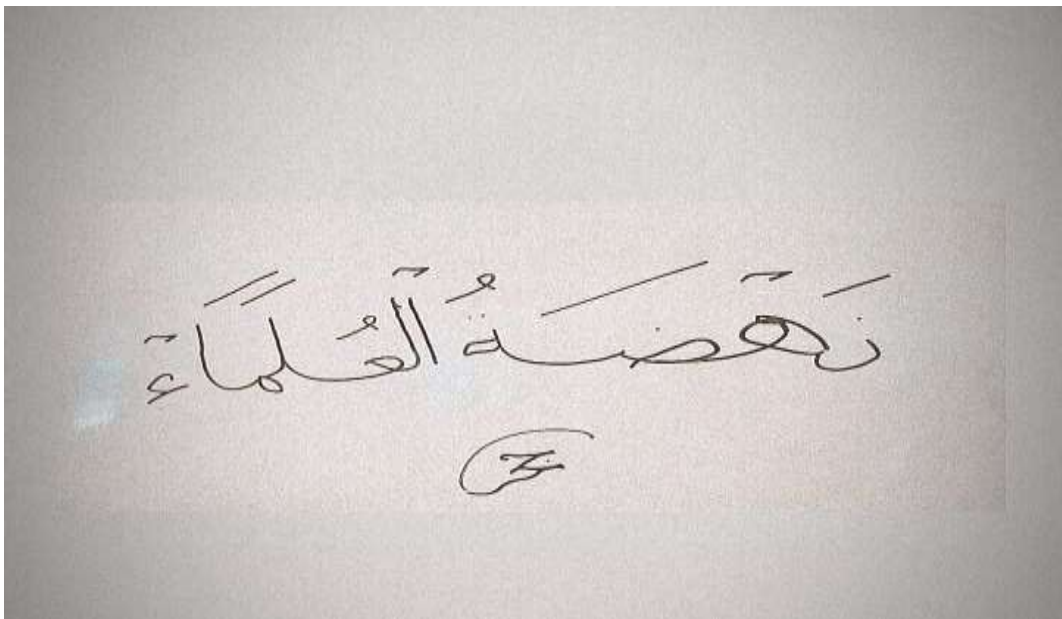 نَهْضَةُ الْعُلَمَاءْ